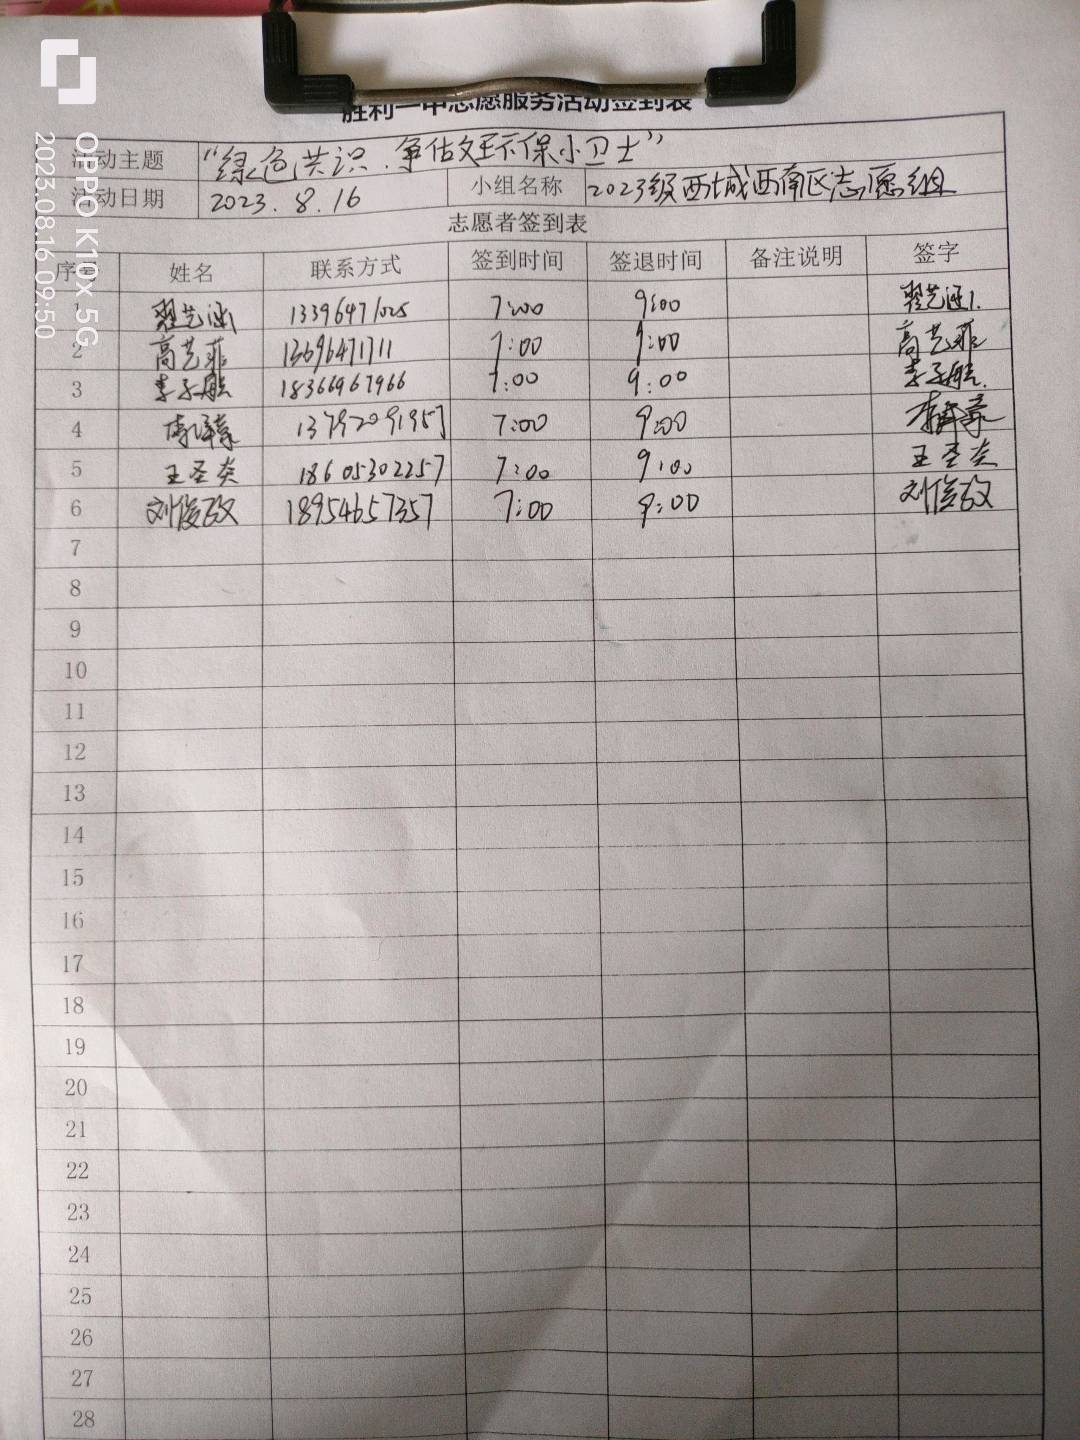 胜利一中志愿服务活动签到表
活动主题 “绿色共识,争做文环保小卫士”
活动日期 2023.8.16 小组名称 2023级西城西南区志愿组
志愿者签到表
序 姓名 联系方式 签到时间 签退时间 备注说明 签字
1 翟艺涵 13396471025 7:00 9:00 翟艺涵
2 高艺菲 13696471711 7:00 9:00 高艺菲
3 李子航 18366967966 7:00 9:00 李子航
4 13792091957 7:00 9:00
5 王圣炎 18605302257 7:00 9:00 王圣炎
6 刘俊孜 18954657357 7:00 9:00 刘俊孜
7
8
9
10
11
12
13
14
15
16
17
18
19
20
21
22
23
24
25
26
27
28
OPPO K10x 5G
2023.08.16 09:50